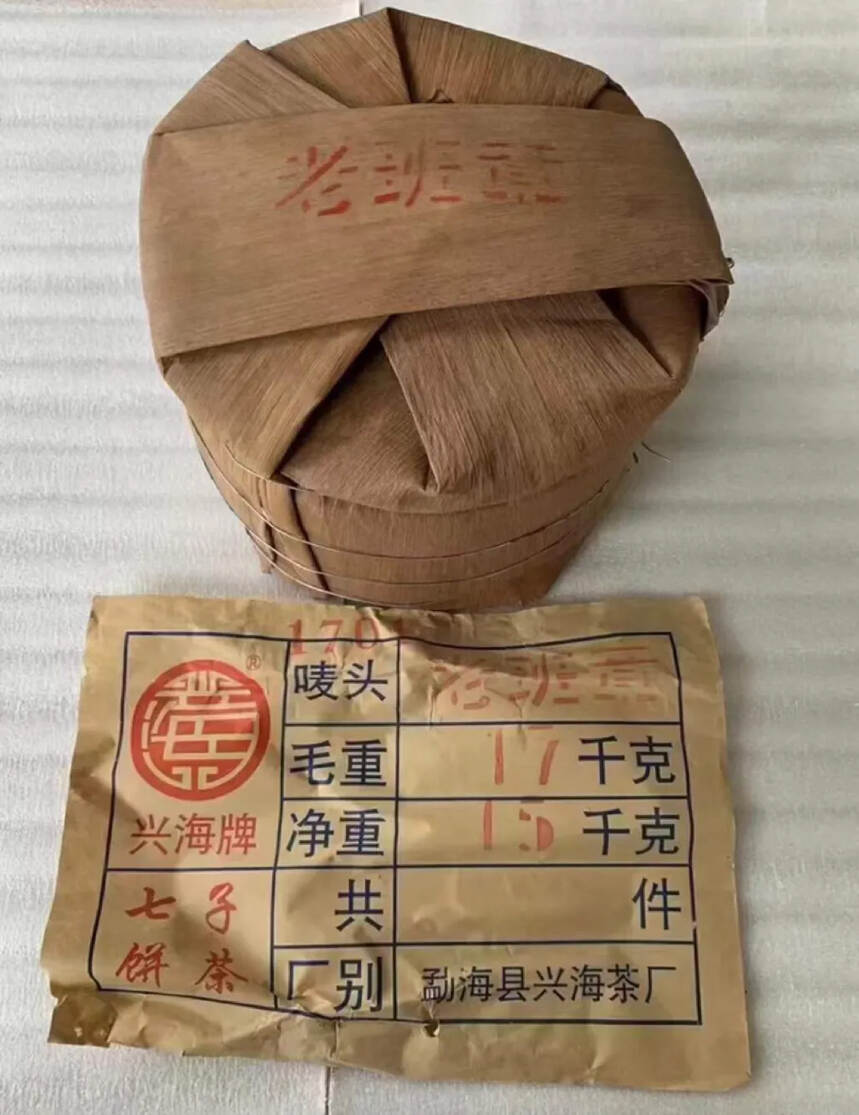 老班章
1701
®
唛头 老班章
毛重 17 千克
兴海牙牌
净重 15 千克
七子
共 件
饼茶
厂别 勐海县兴海茶厂